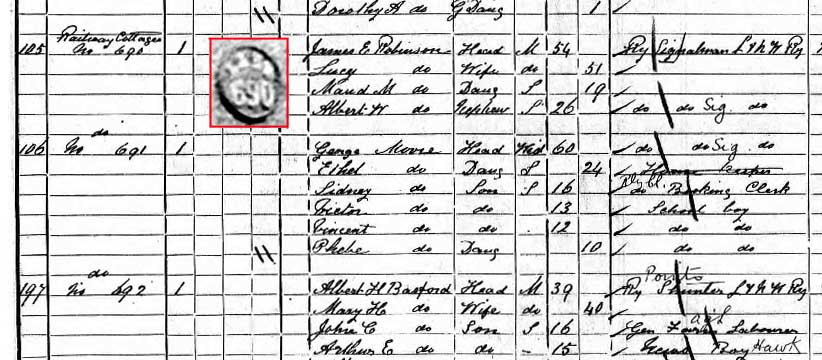 Dorothy A do G Daug 1
Railway Cottages
105 No 690 1 James E. Robinson Head M 54 Ry Signalman L & N W Ry
690
Lucy do Wife do 51
Maud M do Daug S 19
Albert W do Nephew S 26 do do Sig. do
do
106 No 691 1 George Moore Head Wid 60 do do Sig. do
Ethel do Daug S 24 House keeper
Sidney do Son S 16 do Booking Clerk
Victor do do 13 School boy
Vincent do do 12 do do
Phebe do Daug 10 do do
do
Points
197 No 692 1 Albert H Basford Head M 39 Ry Shunter L & N W Ry
Mary H. do Wife do 40
agl
John C do Son S 16 Gen Farm Labourer
Arthur E do do 15 Boy Hawk